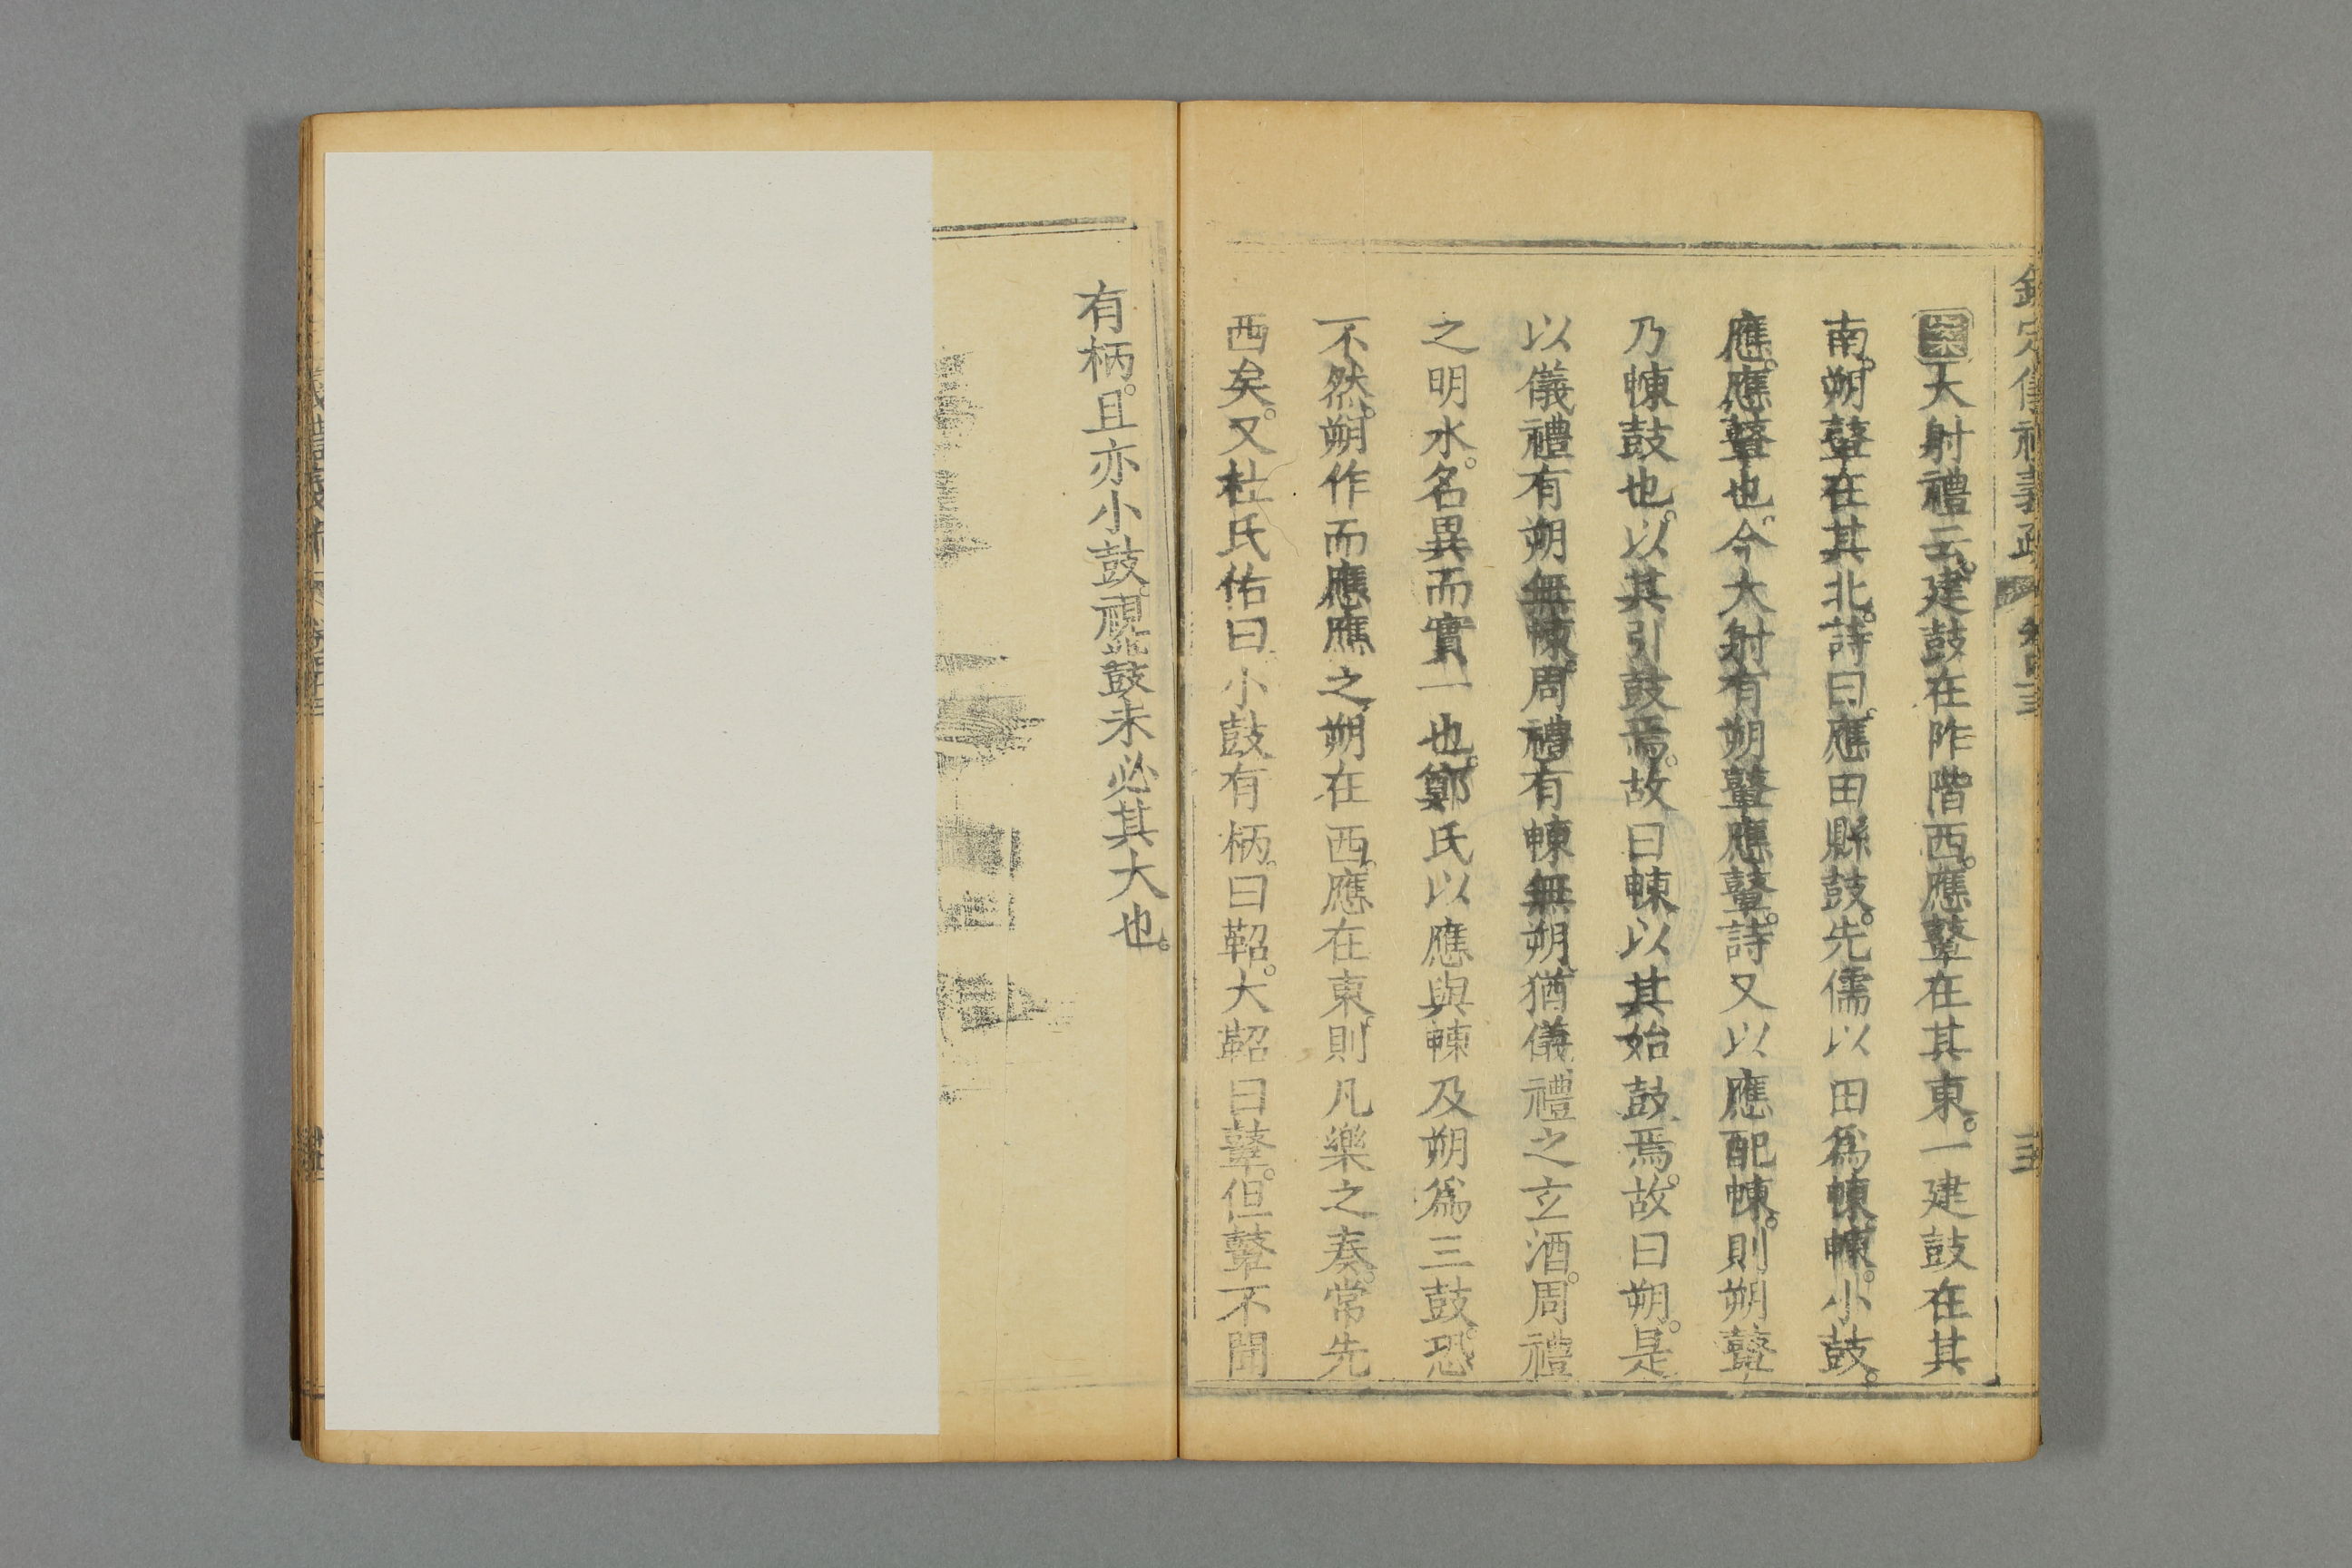 欽定儀禮義疏 卷四十三
案大射禮云。建鼓在阼階西。應鼙在其東。一建鼓在其
南。朔鼙在其北。詩曰。應田縣鼓。先儒以田爲朄。朄。小鼓。
應。應鼙也。今大射有朔鼙應鼙。詩又以應配朄。則朔鼙
乃朄鼓也。以其引鼓焉。故曰朄以其始鼓焉。故曰朔。是
以儀禮有朔無朄。周禮有朄無朔。猶儀禮之玄酒。周禮
之明水。名異而實一也。鄭氏以應與朄及朔爲三鼓。恐
不然。朔作而應應之。朔在西。應在東。則凡樂之奏。常先
西矣。又杜氏佑曰。小鼓有柄。曰鞀。大鞀曰鼙。但鼙不聞
有柄。且亦小鼓。視鼗鼓未必其大也。